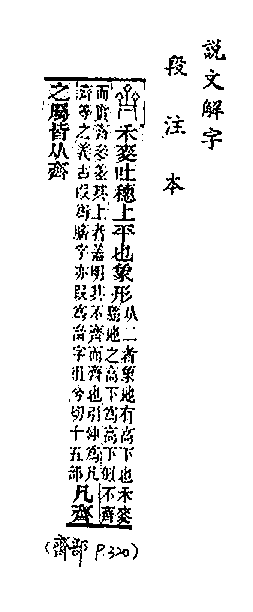 說文解字
段注本
禾麥吐穗上平也象形
从二者象地有高下也禾麥
隨地之高下爲高下似不齊
而實齊參差其上者蓋明其不齊而齊也引伸爲凡
齊等之義古叚爲臍字亦叚爲字徂兮切十五部
凡齊
之屬皆从齊
(齊部 P.320)